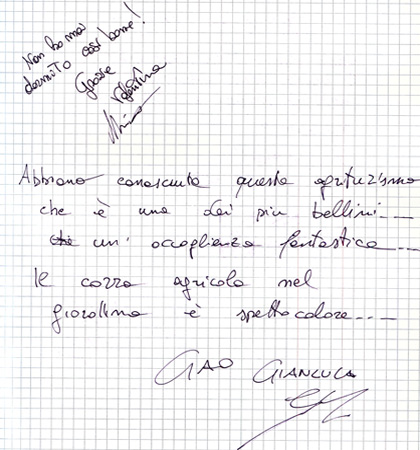 Non ho mai
dormito così bene!
Grazie
Valentina
Abbiamo conosciuto questo agriturismo
che è uno dei più bellini....
un' accoglienza fantastica....
le cozza agricola nel
è spettacolare....
CIAO GIANLUCA